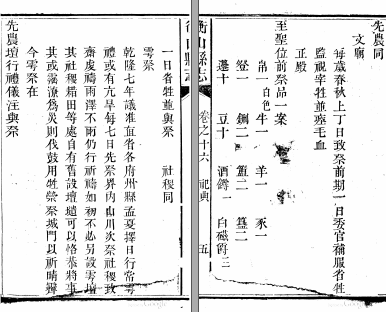 先農同
文廟
每歲春秋上丁日致祭前期一日委官補服省牲
監視宰牲並瘞毛血
正殿
至聖位前祭品一案
帛一白色 牛一 羊一 豕一
登一 鉶二 簠二 簋二
籩十 豆十 酒罇一 白磁爵三
衡山縣志 卷之十六 祀典 五
衡山縣志
一日省牲並與祭 社稷同
雩祭
乾隆七年議准直省各府州縣孟夏擇日行常雩
禮或有亢旱每七日先祭界內山川次祭社稷致
齋虔禱雨澤不雨仍行祈禱如初不必另設雩壇
其社稷耤田等處自有舊設壇壝可以恪恭將事
其或霖潦為災則伐鼓用牲禜祭城門以祈晴霽
今雩祭在
先農壇行禮儀注與祭